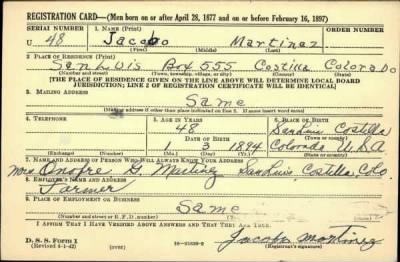 REGISTRATION CARD—(Men born on or after April 28, 1877 and on or before February 16, 1897)
SERIAL NUMBER 1. NAME (Print) ORDER NUMBER
U 48 Jacobo Martinez
(First) (Middle) (Last)
2. PLACE OF RESIDENCE (Print)
San Luis Box 555 Costilla Colorado
(Number and street) (Town, township, village, or city) (County) (State)
[THE PLACE OF RESIDENCE GIVEN ON THE LINE ABOVE WILL DETERMINE LOCAL BOARD
JURISDICTION; LINE 2 OF REGISTRATION CERTIFICATE WILL BE IDENTICAL]
3. MAILING ADDRESS
Same
[Mailing address if other than place indicated on line 2. If same insert word same]
4. TELEPHONE 5. AGE IN YEARS 6. PLACE OF BIRTH
48 San Luis Costilla
DATE OF BIRTH (Town or county)
1 3 1894 Colorado U.S.A
(Exchange) (Number) (Mo.) (Day) (Yr.) (State or country)
7. NAME AND ADDRESS OF PERSON WHO WILL ALWAYS KNOW YOUR ADDRESS
Mrs Onofre G. Martinez San Luis, Costilla, Colo
8. EMPLOYER'S NAME AND ADDRESS
Farmer
9. PLACE OF EMPLOYMENT OR BUSINESS
Same
(Number and street or R. F. D. number) (Town) (County) (State)
I AFFIRM THAT I HAVE VERIFIED ABOVE ANSWERS AND THAT THEY ARE TRUE.
Jacobo Martinez
D. S. S. Form 1
(Revised 4-1-42) (over) (Registrant's signature)